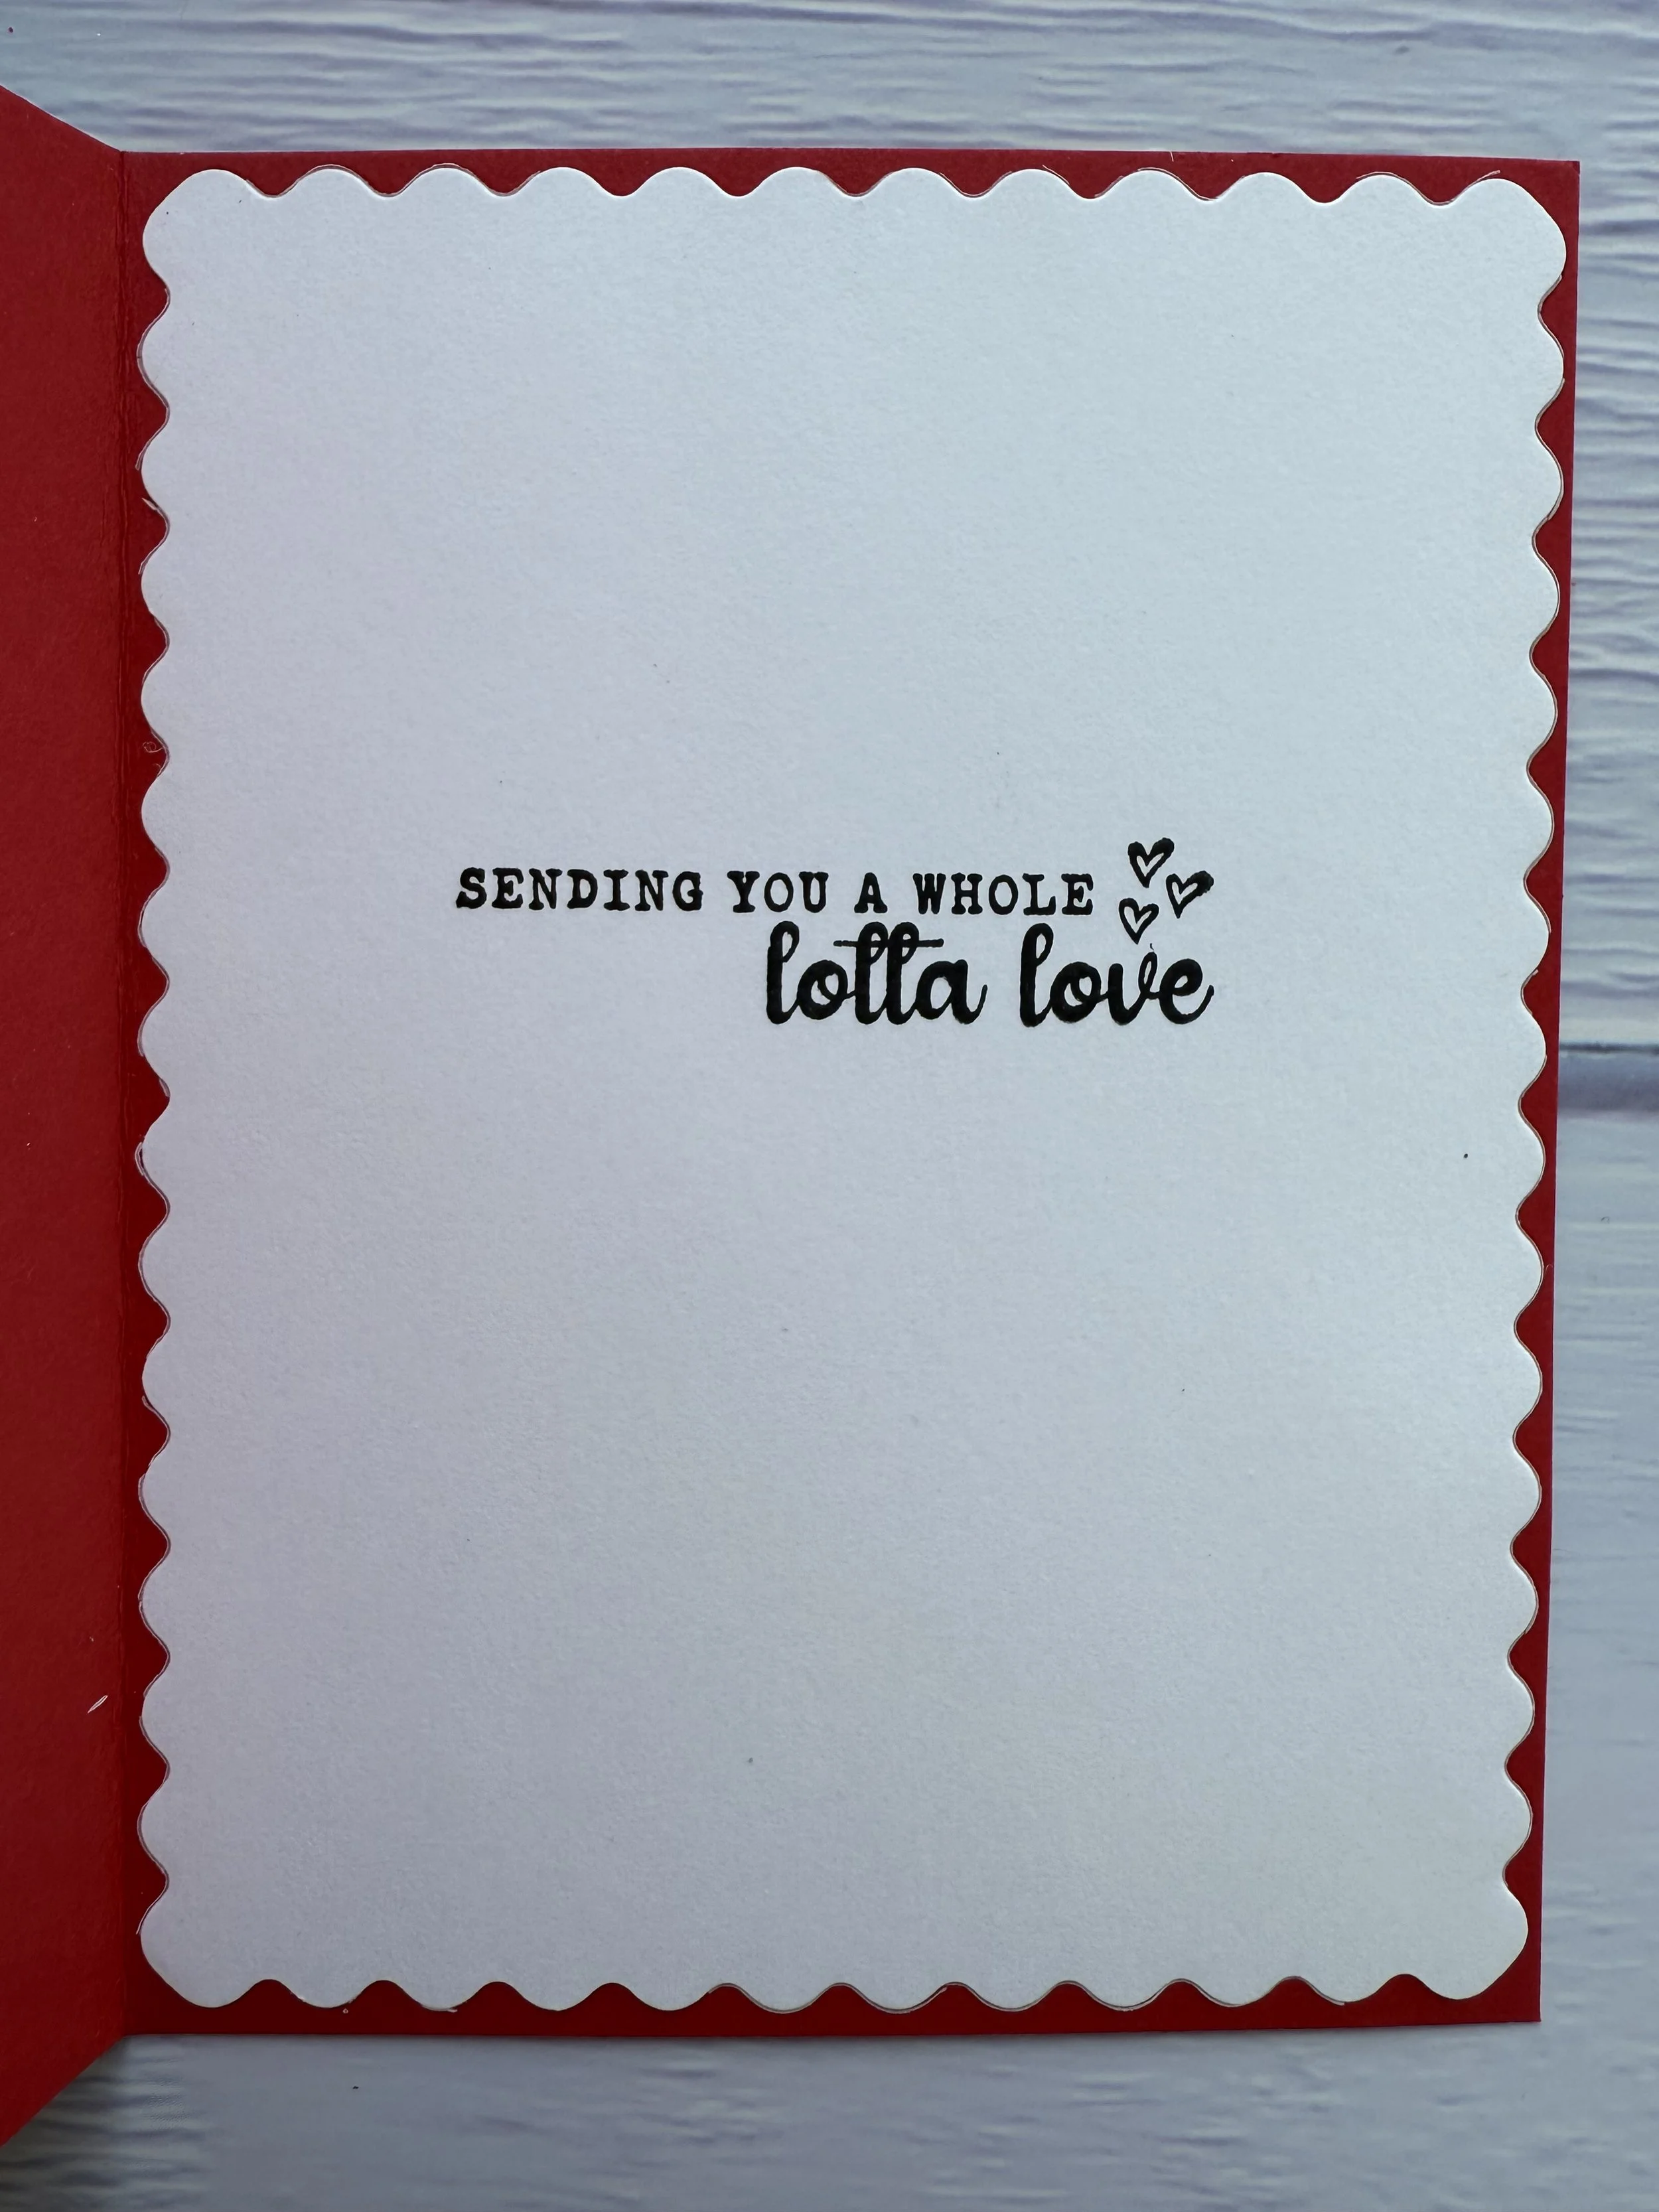 SENDING YOU A WHOLE
lotta love